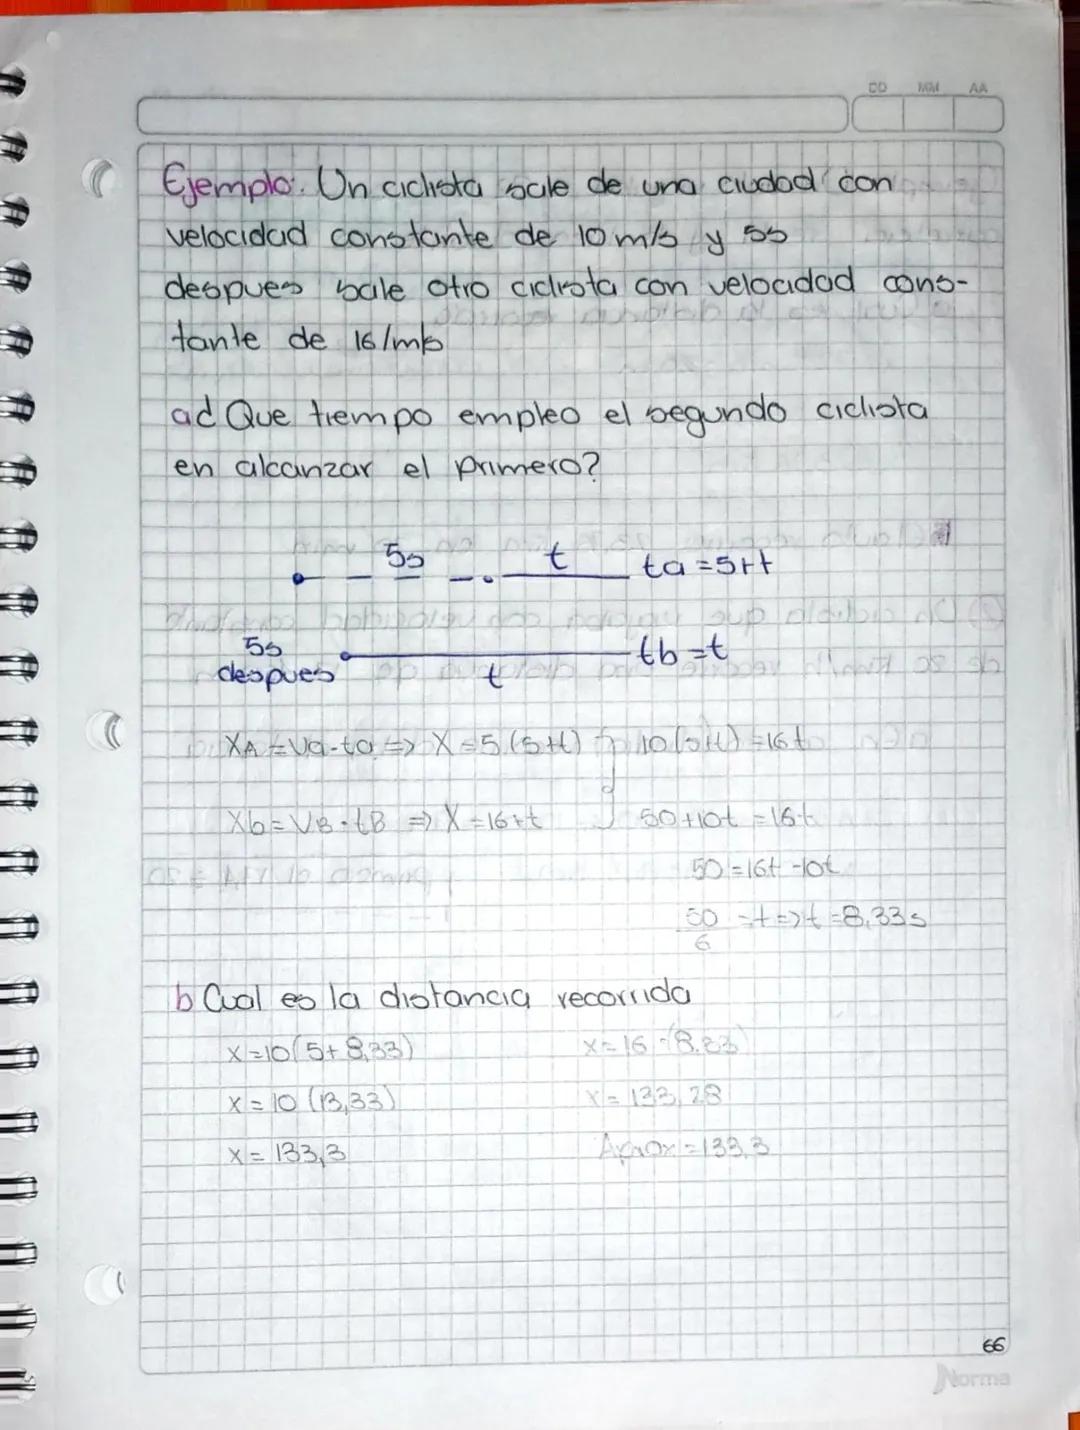 DD MM AA
Ejemplo: Un ciclista sale de una ciudad con
velocidad constante de 10 m/s y 5s
despues sale otro ciclista con velocidad cons-
tante de 16/m/s
a¿ Que tiempo empleo el segundo ciclista
en alcanzar el primero?
5s t ta = 5+t
5s
despues t tb = t
XA = Va·ta => X = 5.(5+t) 10(5+t) = 16t
Xb = VB·tB => X = 16·t 50+10t = 16·t
50 = 16t - 10t
50/6 = t => t = 8,33s
b Cual es la distancia recorrida
X = 10(5+8,33) X = 16·(8.33)
X = 10 (13,33) X = 133,28
X = 133,3 Aprox = 133,3
66
Norma